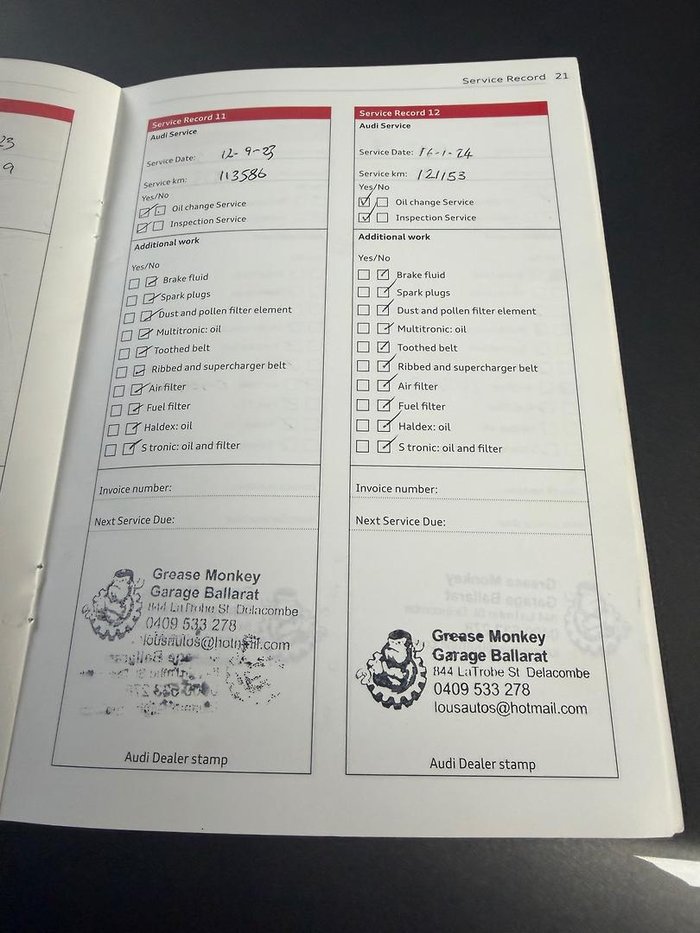 Service Record 21
23
9
Service Record 11
Audi Service
Service Date: 12-9-23
Service km: 113586
Yes/No
Oil change Service
Inspection Service
Additional work
Yes/No
Brake fluid
Spark plugs
Dust and pollen filter element
Multitronic: oil
Toothed belt
Ribbed and supercharger belt
Air filter
Fuel filter
Haldex: oil
S tronic: oil and filter
Invoice number:
Next Service Due:
Grease Monkey
Garage Ballarat
844 LaTrobe St Delacombe
0409 533 278
lousautos@hotmail.com
Audi Dealer stamp
Service Record 12
Audi Service
Service Date: 16-1-24
Service km: 121153
Yes/No
Oil change Service
Inspection Service
Additional work
Yes/No
Brake fluid
Spark plugs
Dust and pollen filter element
Multitronic: oil
Toothed belt
Ribbed and supercharger belt
Air filter
Fuel filter
Haldex: oil
S tronic: oil and filter
Invoice number:
Next Service Due:
Grease Monkey
Garage Ballarat
844 LaTrobe St Delacombe
0409 533 278
lousautos@hotmail.com
Audi Dealer stamp